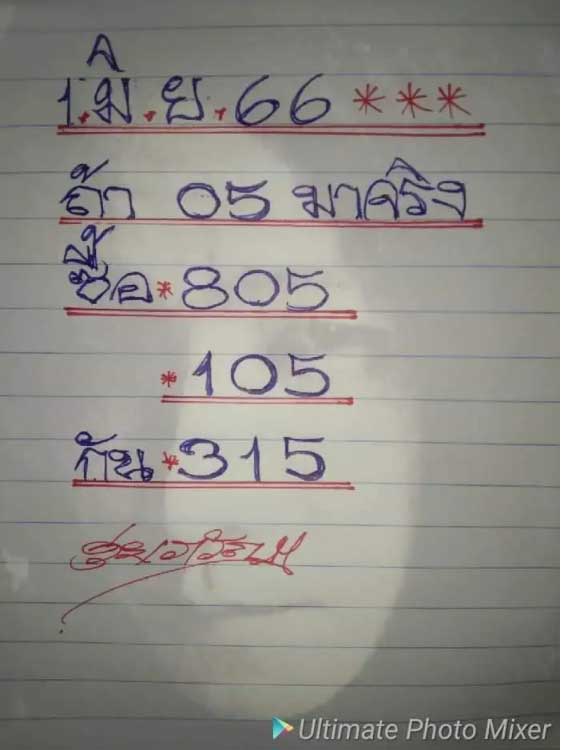 1.มิ.ย.66 ***
ถ้า 05 มาจริง
ซื้อ*805
*105
กัน*315
Ultimate Photo Mixer